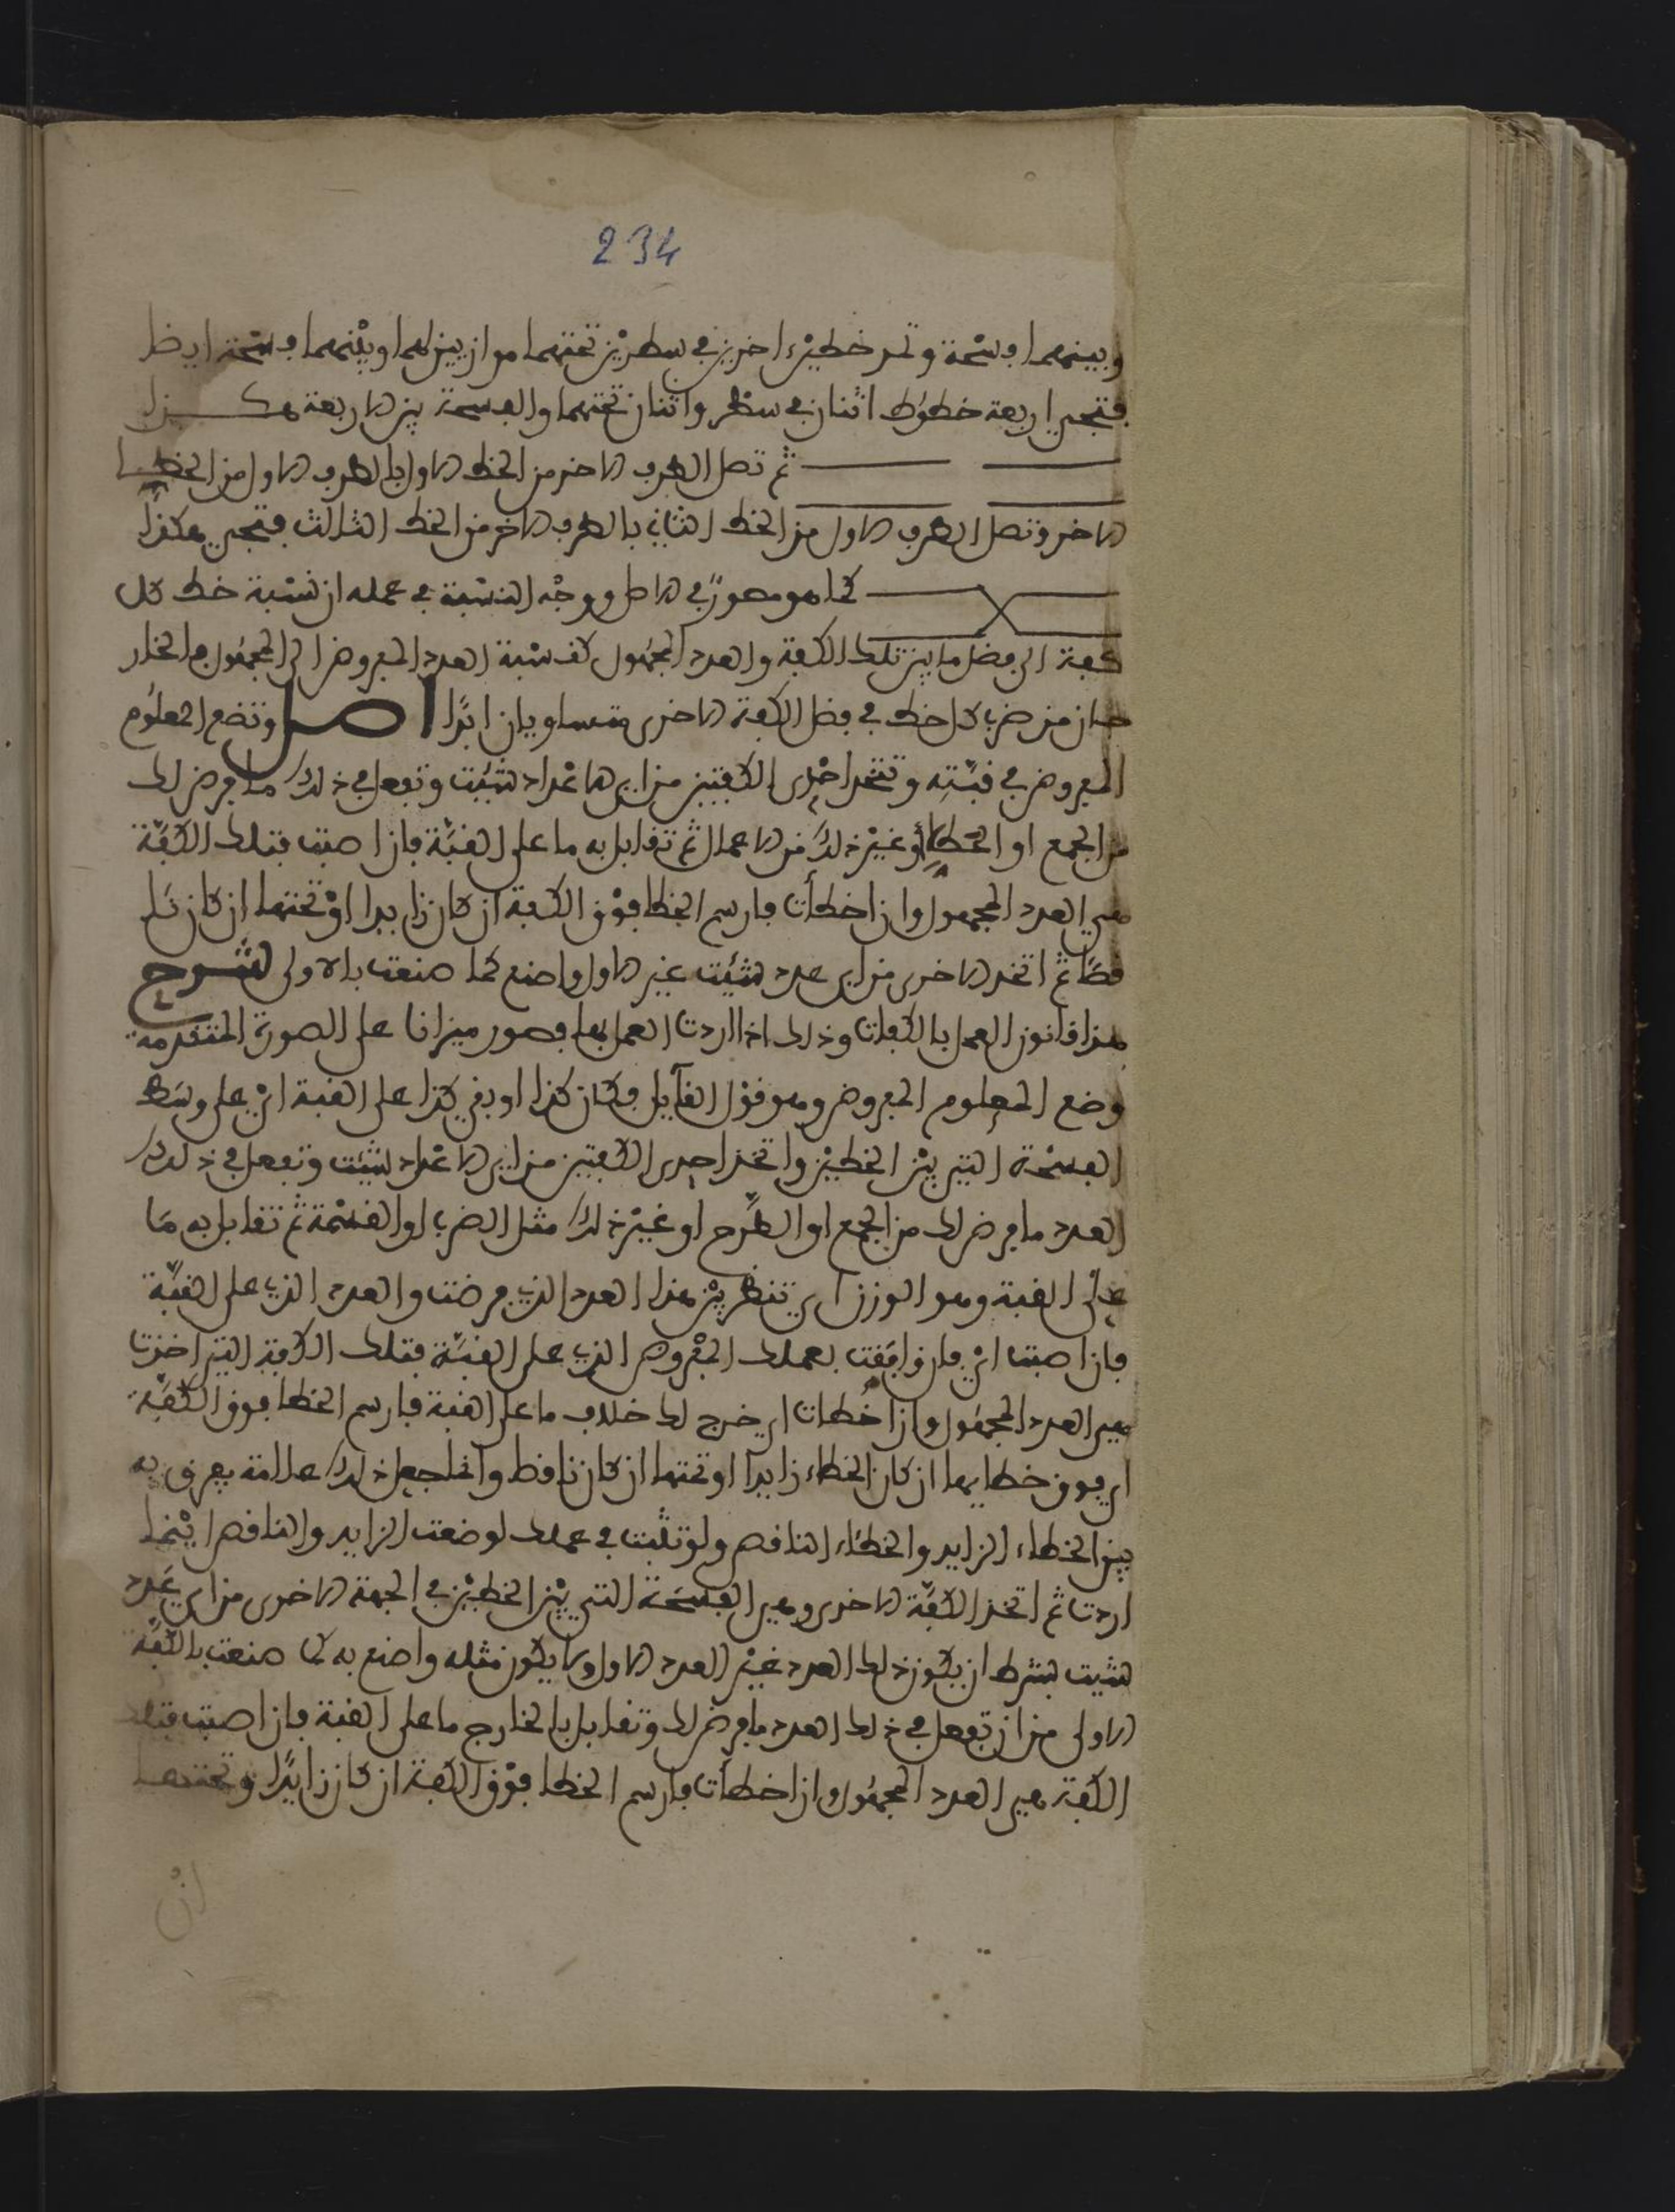 234
وبينهما فسحة وتمد خطين اخرين في سطرين تحتهما موازيين لهما وبينهما فسحة ايضا
فتجيء اربعة خطوط اثنان في سطر واثنان تحتهما والفسحة بين الاربعة هكذا
ثم تصل الطرف الاخر من الخط الاول بالطرف الاول من الخط
الاخر وتصل الطرف الاول من الخط الثاني بالطرف الاخر من الخط الثالث فتجيء هكذا
كما هو مصور في الاصل ووجه النسبة في عمله ان نسبة خطا كل
كفة الى فضل ما بين تلك الكفة والعدد المجهول كنسبة العدد المفروض الى المجهول والخار
جان من ضرب كل خطا في فضل الكفة الاخرى متساويان ابدًا اصل وتضع المعلوم
المفروض في قبّته وتتخذ احدى الكفتين من اي الاعداد شئت وتفعل في ذلك ما فرض لك
من الجمع او الحط أو غير ذلك من الاعمال ثم تقابل به ما على القبّة فان اصبت فتلك الكفّة
هي العدد المجهول وان اخطأت فارسم الخطا فوق الكفة ان كان زايدا او تحتها ان كان نا
قصًا ثم اتخذ الاخرى من اي عدد شئت غير الاول واصنع كما صنعت بالاولى شرح
هذا قانون العمل بالكفات وذلك اذا اردت العمل بها فصور ميزانا على الصورة المتقدمة
وضع المعلوم المفروض وهو قول القآيل فكان كذا او بقي كذا على القبة اي على وسط
الفسحة التي بين الخطين واتخذ احدى الكفتين من اي الاعداد شئت وتفعل في ذلك
العدد ما فرض لك من الجمع او الطرح او غير ذلك مثل الضرب او القسمة ثم تقابل به ما
على القبة وهو الوزن اي تنظر بين هذا العدد الذي فرضت والعدد الذي على القبّة
فان اصبت اي فان وافقت بعملك المفروض الذي على القبّة فتلك الكفة التي اخذت
هي العدد المجهول وان اخطات اي خرج لك خلاف ما على القبة فارسم الخطا فوق الكفّة
اي فوق خطايها ان كان الخطاء زايدا او تحتها ان كان ناقصا وانما جعل ذلك علامة يعرف به
بين الخطاء الزايد والخطاء الناقص ولو تثبت في عملك لوضعت الزايد والناقص اينما
اردت ثم اتخذ الكفّة الاخرى وهي الفسحة التي بين الخطين في الجهة الاخرى من اي عدد
شيت بشرط ان يكون ذلك العدد غير العدد الاول ولا يكون مثله واصنع به كما صنعت بالكفّة
الاولى من ان تفعل في ذلك العدد ما فرض لك وتقابل بالخارج ما على القبة فان اصبت فتلك
الكفة هي العدد المجهول وان اخطأت فارسم الخطا فوق الكفة ان كان زايدًا وتحتها
ان